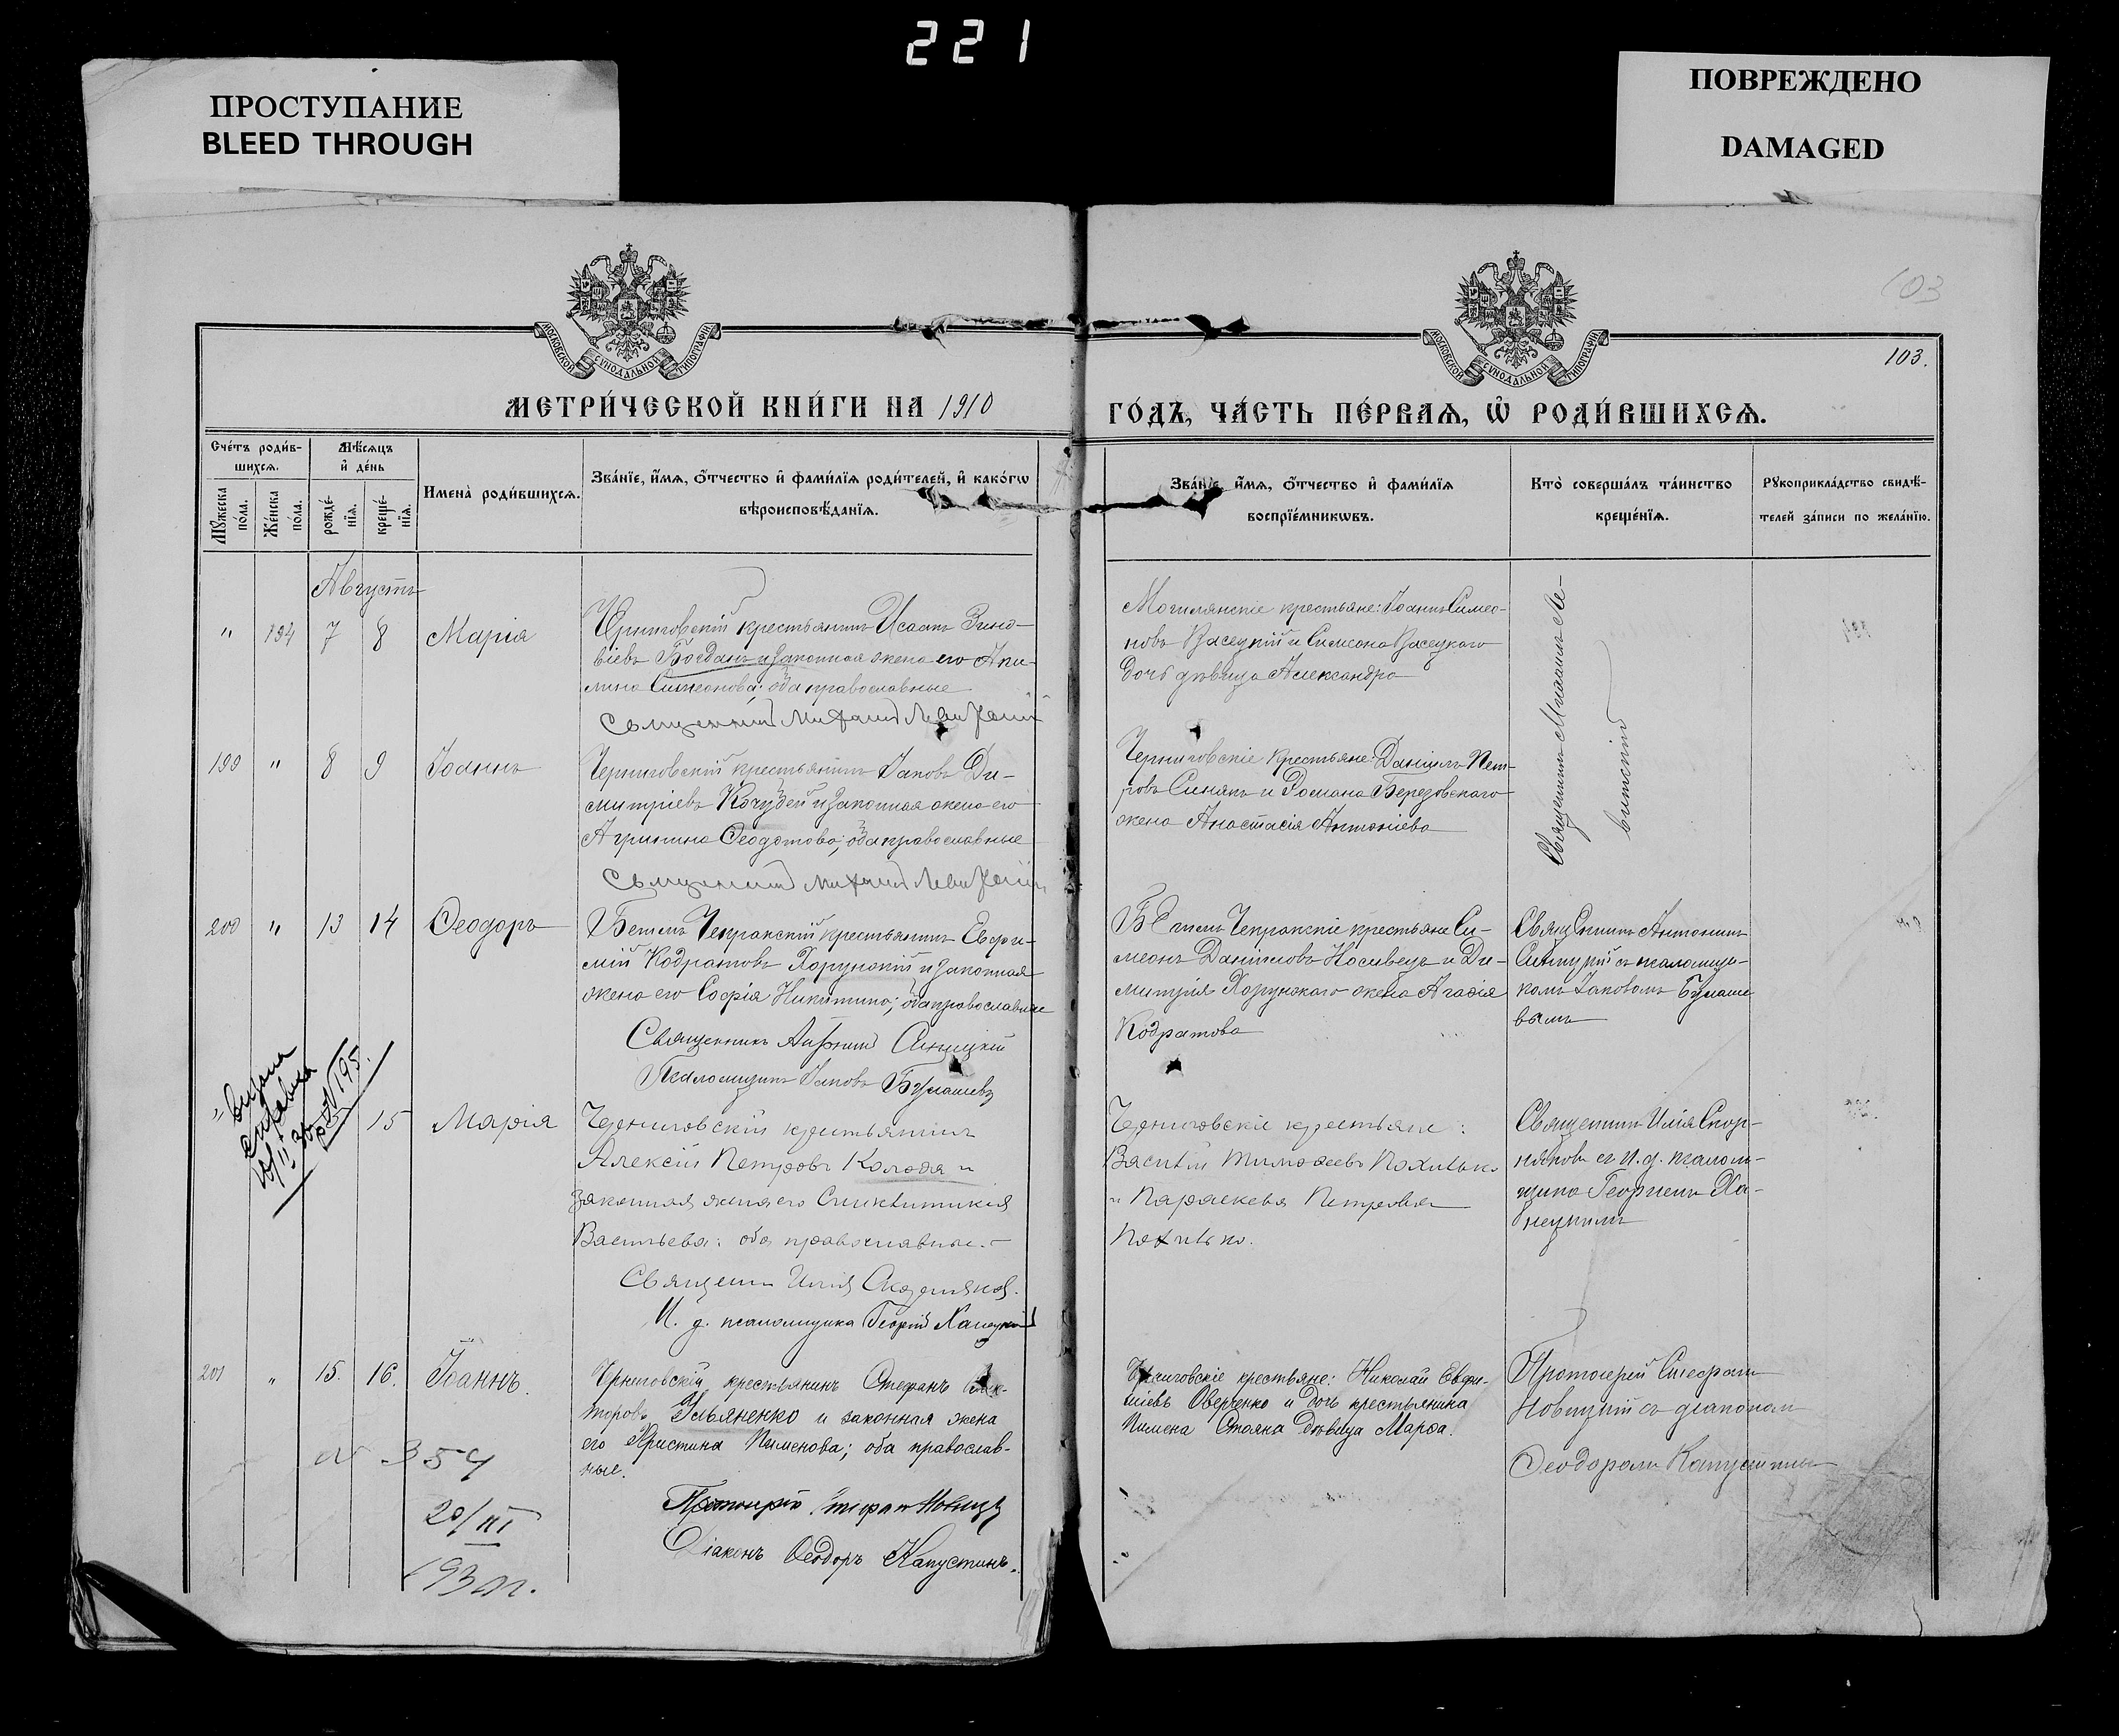 221
ПРОСТУПАНИЕ
BLEED THROUGH
ПОВРЕЖДЕНО
DAMAGED
103
103.
МОСКОВСКОЙ СУНОДАЛЬНОЙ ТИПОГРАФІИ
МОСКОВСКОЙ СУНОДАЛЬНОЙ ТИПОГРАФІИ
МЕТРИ́ЧЕСКОЙ КНИ́ГИ НА 1910
ГО́ДЪ, ЧА́СТЬ ПЕ́РВАЯ, Ѡ҆ РОДИ́ВШИХСѦ.
Сче́тъ роди́в-
шихсѧ.
Мѣ́сѧцъ
и҆ де́нь
Мꙋ́жеска по́ла.
Же́нска по́ла.
рожде́-
нїѧ.
креще́-
нїѧ.
Имена̀ роди́вшихсѧ.
Зва́нїе, и҆́мѧ, ѻ҆́тчество и҆ фами́лїѧ роди́телей, и҆ како́гѡ
вѣроисповѣ́данїѧ.
Зва́нїе, и҆́мѧ, ѻ҆́тчество и҆ фами́лїѧ
воспрїе́мникѡвъ.
Кто̀ соверша́лъ та́инство
креще́нїѧ.
Рꙋкоприкла́дство свидѣ́-
телей за́писи по жела́нїю.
Августъ
" 194 7 8 Марія
Черниговскій крестьянинъ Исаакъ Зино-
віевъ Богданъ и законная жена его Аки-
лина Симеонова; оба православные
Священникъ Михаилъ Левитскій
Могилянскіе крестьяне: Іоаннъ Симео-
новъ Васецкій и Симеона Васецкаго
дочь дѣвица Александра
Священникъ Михаилъ Ле-
витскій
199 " 8 9 Іоаннъ
Черниговскій крестьянинъ Іаковъ Ди-
митріевъ Кочубей и законная жена его
Агрипина Ѳеодотова; оба православные
Священникъ Михаилъ Левитскій
Черниговскіе крестьяне: Даніилъ Пет-
ровъ Синякъ и Романа Березовскаго
жена Анастасія Антоніева
200 " 13 14 Ѳеодоръ
Бешъ Чепракскій крестьянинъ Евфи-
мій Кодратовъ Хорунжій и законная
жена его Софія Никитина; оба православные
Священникъ Антоній Синицкій
Псаломщикъ Іаковъ Булашевъ
Чепракскіе крестьяне Си-
меонъ Даніиловъ Носивецъ и Ди-
митрія Хорунжаго жена Агафія
Кодратова
Священникъ Антоній
съ псаломщи-
комъ Іаковомъ Булаше
вымъ
15 15 Марія
Черниговскій крестьянинъ
Алексій Петровъ Колодя и
законная жена его Синклитикія
Васильева: оба православные.
Священникъ Илія
И. д. псаломщика Георгій Ханецкій
Черниговскіе крестьяне:
Василій Тимоѳеевъ Похилько
и Параскева Петровна
Похилько.
Священникъ Илія Скор-
няковъ съ и. д. псалом-
щика Георгіемъ Ха-
нецкимъ
201 " 15. 16. Іоаннъ.
Черниговскій крестьянинъ Стефанъ Вик-
торовъ Ульяненко и законная жена
его Христина Пименова; оба православ-
ные.
Протоіерей Стефанъ Новицкій
Діаконъ Ѳеодоръ Капустинъ.
Черниговскіе крестьяне: Николай Евфи-
міевъ Оверченко и дочь крестьянина
Пимена Стояна дѣвица Марѳа.
Протоіерей Стефанъ
Новицкій съ діакономъ
Ѳеодоромъ Капустинымъ
№ 354
20/III